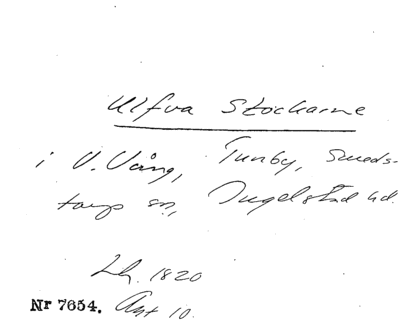 Ulfva Stockarne
i V. Vång, Tunby, Smeds-
torps sn, Ingelstad hd.
Lh. 1820
Nr 7654. Ant 10.